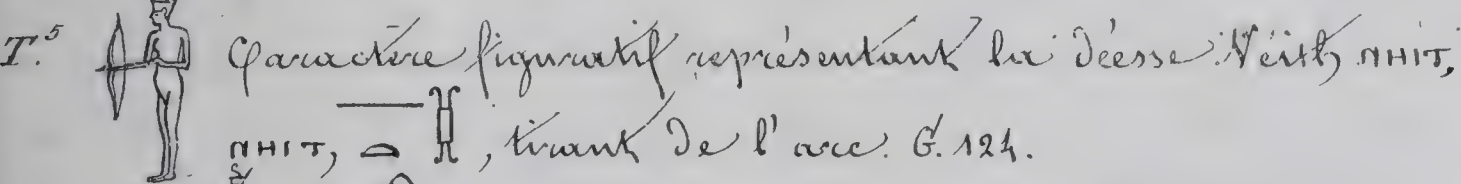 T.⁵ Caractère figuratif représentant la déesse Neith, ⲚⲎⲒⲦ,
ⲚⲎⲒⲦ, tirant de l'arc. G. 124.